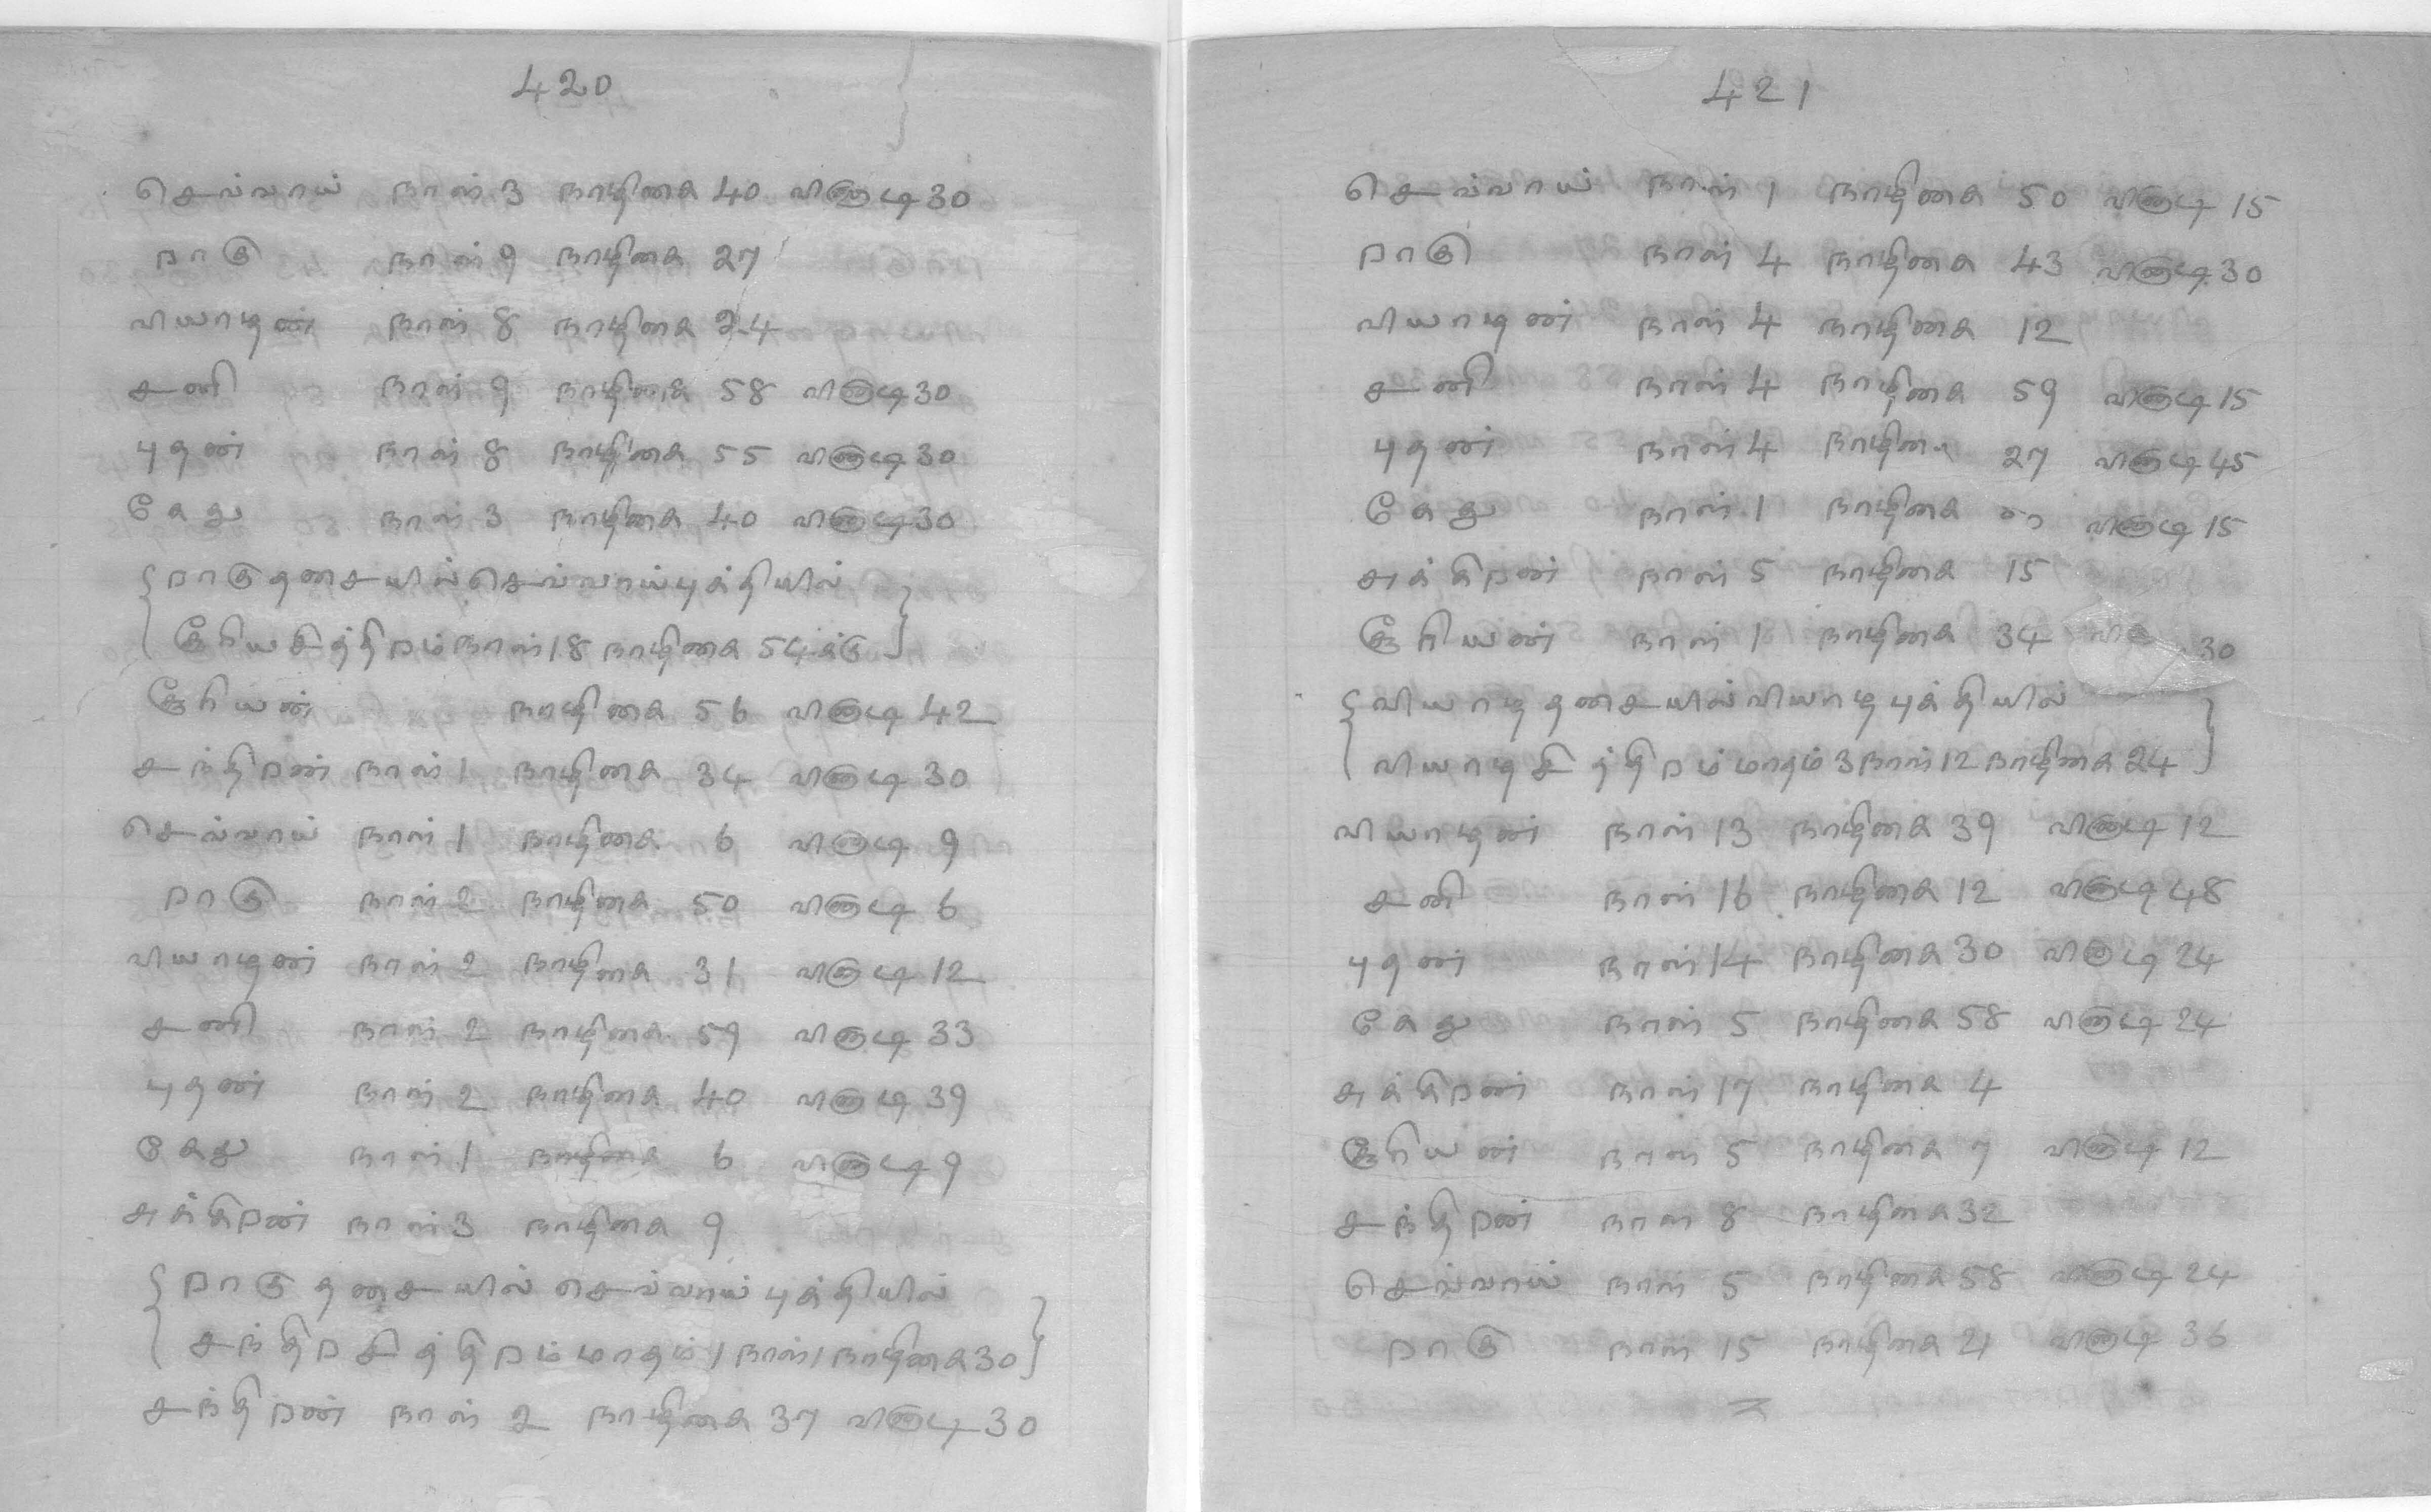 420
செவ்வாய் நாள் 3 நாழிகை 40 விநாடி 30
றாகு நாள் 9 நாழிகை 27
வியாழன் நாள் 8 நாழிகை 24
சனி நாள் 9 நாழிகை 58 விநாடி 30
புதன் நாள் 8 நாழிகை 55 விநாடி 30
கேது நாள் 3 நாழிகை 40 விநாடி 30
{றாகு தசையில் செவ்வாய் புக்தியில்
சூரிய சித்திறம் நாள் 18 நாழிகை 54க்கு}
சூரியன் நாழிகை 56 விநாடி 42
சந்திறன் நாள் 1 நாழிகை 34 விநாடி 30
செவ்வாய் நாள் 1 நாழிகை 6 விநாடி 9
றாகு நாள் 2 நாழிகை 50 விநாடி 6
வியாழன் நாள் 2 நாழிகை 31 விநாடி 12
சனி நாள் 2 நாழிகை 59 விநாடி 33
புதன் நாள் 2 நாழிகை 40 விநாடி 39
கேது நாள் 1 நாழிகை 6 விநாடி 9
சுக்கிறன் நாள் 3 நாழிகை 9
{றாகு தசையில் செவ்வாய் புக்தியில்
சந்திற சித்திறம் மாதம் 1 நாள் 1 நாழிகை 30}
சந்திறன் நாள் 2 நாழிகை 37 விநாடி 30
421
செவ்வாய் நாள் 1 நாழிகை 50 விநாடி 15
றாகு நாள் 4 நாழிகை 43 விநாடி 30
வியாழன் நாள் 4 நாழிகை 12
சனி நாள் 4 நாழிகை 59 விநாடி 15
புதன் நாள் 4 நாழிகை 27 விநாடி 45
கேது நாள் 1 நாழிகை விநாடி 15
சுக்கிறன் நாள் 5 நாழிகை 15
சூரியன் நாள் 1 நாழிகை 34 30
{வியாழ தசையில் வியாழ புக்தியில்
வியாழ சித்திறம் மாதம் 3 நாள் 12 நாழிகை 24}
வியாழன் நாள் 13 நாழிகை 39 விநாடி 12
சனி நாள் 16 நாழிகை 12 விநாடி 48
புதன் நாள் 14 நாழிகை 30 விநாடி 24
கேது நாள் 5 நாழிகை 58 விநாடி 24
சுக்கிறன் நாள் 17 நாழிகை 4
சூரியன் நாள் 5 நாழிகை 7 விநாடி 12
சந்திறன் நாள் 8 நாழிகை 32
செவ்வாய் நாள் 5 நாழிகை 58 விநாடி 24
றாகு நாள் 15 நாழிகை 21 விநாடி 36